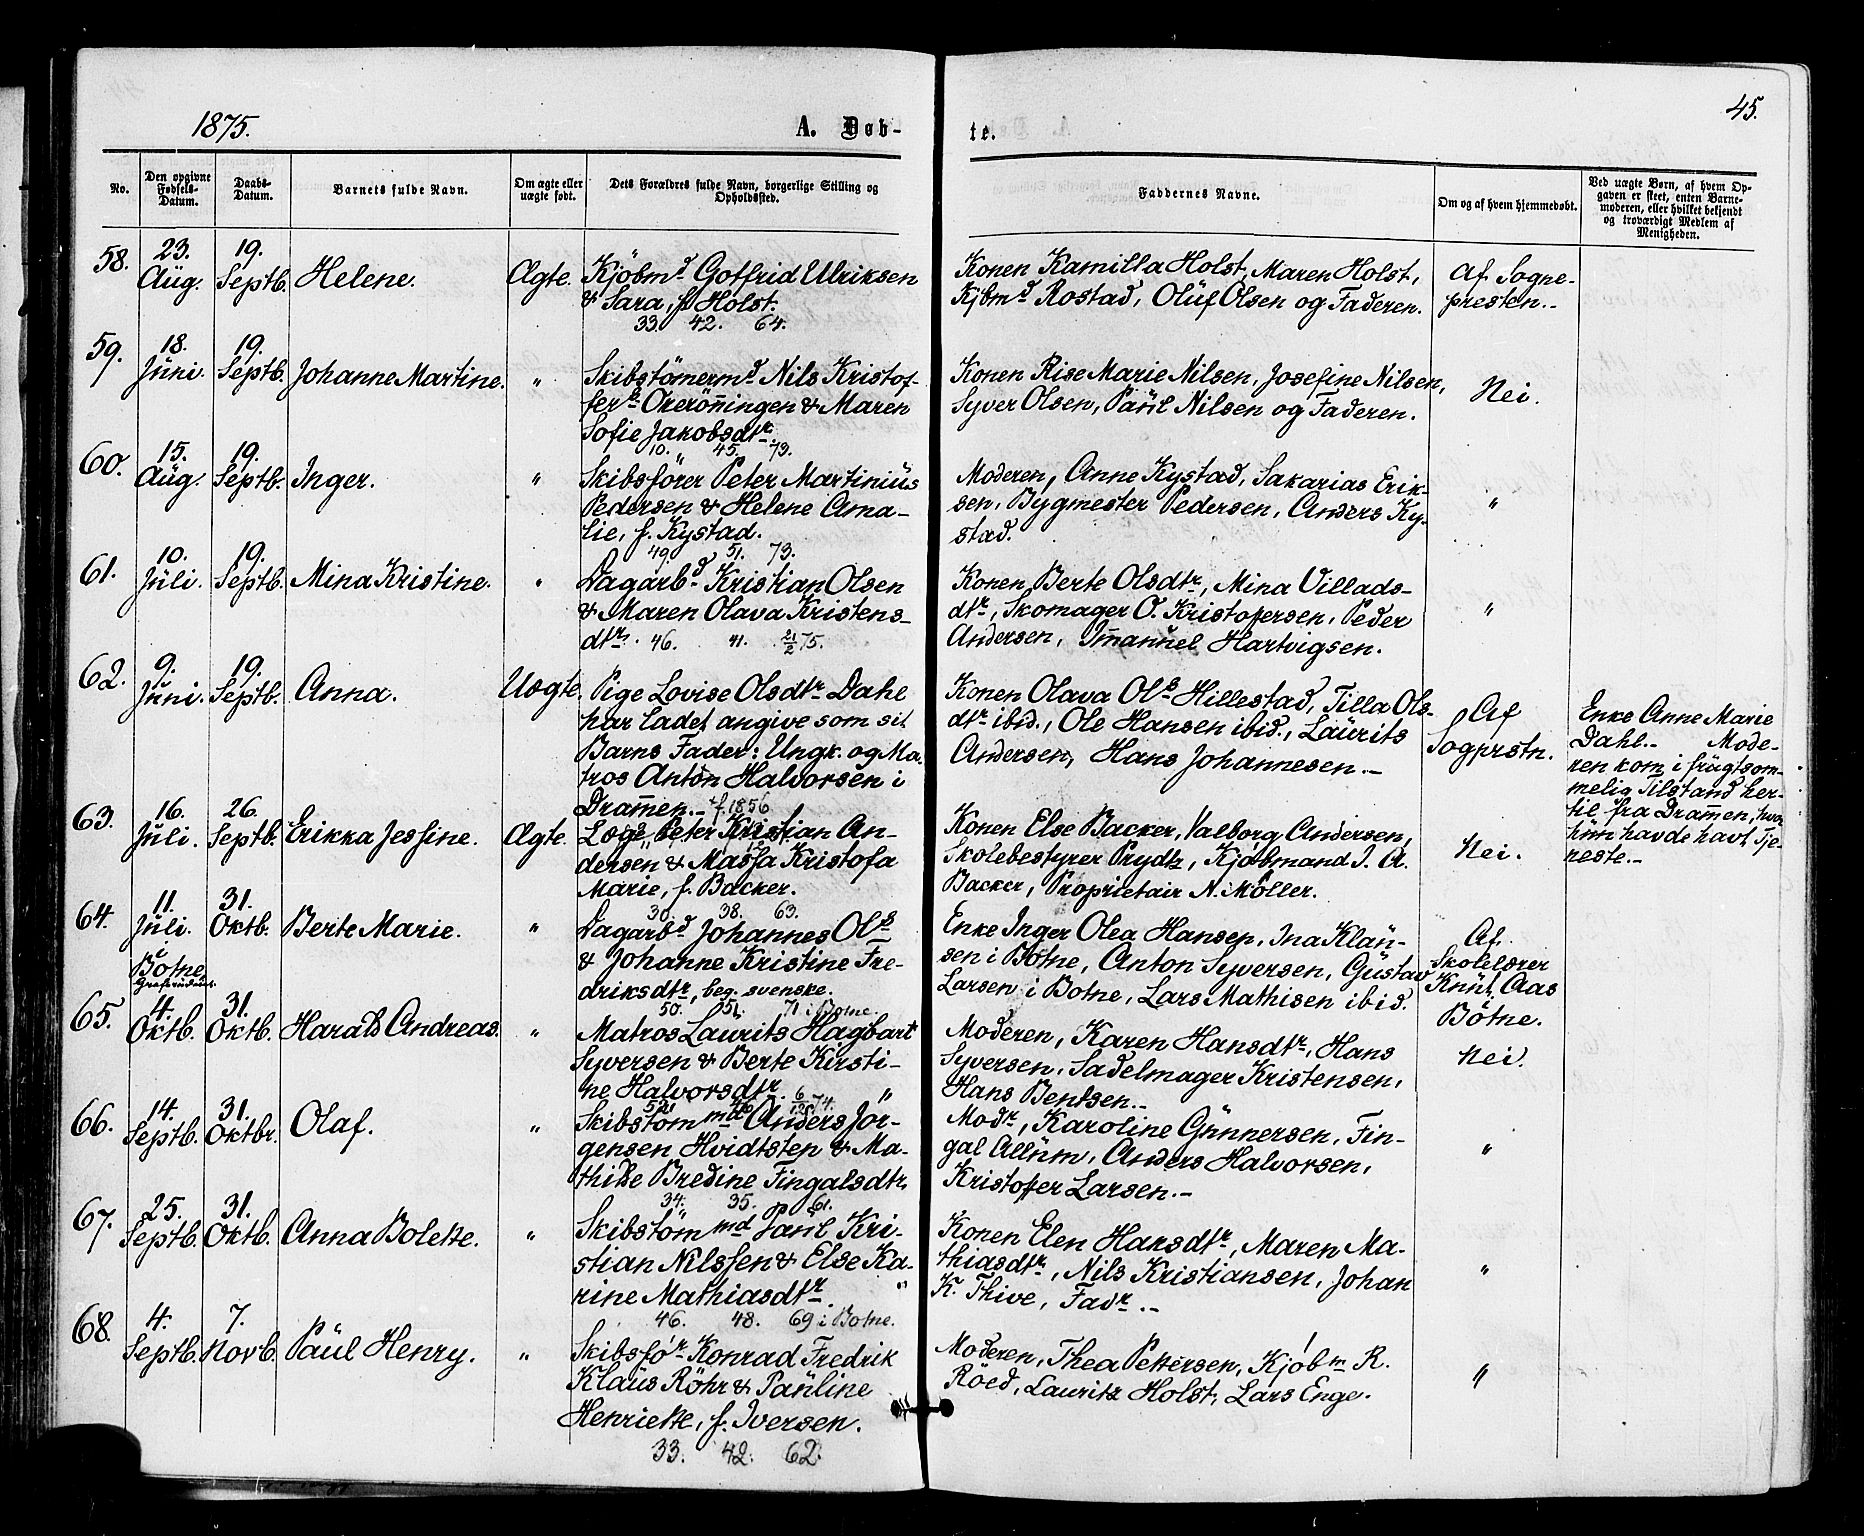 1875.
A. Døb-
te.
45.
No.
Den opgivne
Fødsels-
Datum.
Daabs-
Datum.
Barnets fulde Navn.
Om ægte eller
uægte født.
Dets Forældres fulde Navn, borgerlige Stilling og
Opholdssted.
Faddernes Navne.
Om og af hvem hjemmedøbt.
Ved uægte Børn, af hvem Op-
gaven er skeet, enten Barne-
moderen, eller hvilket bekjendt
og troværdigt Medlem af
Menigheden.
58.
23.
Aug.
19.
Septb.
Helene.
Ægte.
Kjöbmd Gotfrid Ulriksen
& Sara, f. Holst.
33. 42. 64.
Konen Kamilla Holst, Maren Holst,
Kjbmd Rostad, Oluf Olsen og Faderen.
Af Sogne-
presten.-
59.
18.
Juni.
19.
Septb.
Johanne Martine.
"
Skibstömermd Nils Kristof-
fers Ørerönningen & Maren
Sofie Jakobsdtr.
10. 45. 73.
Konen Rise Marie Nilsen, Josefine Nilsen,
Syver Olsen, Paul Nilsen og Faderen.
Nei.
60.
15.
Aug.
19.
Septb.
Inger.
"
Skibsförer Peter Martinius
Pedersen & Helene Ama-
lie, f. Kystad.
49. 51. 73.
Moderen, Anne Kystad, Sakarias Erik-
sen, Bygmester Pedersen, Anders Ky-
stad.
"
61.
10.
Juli.
19.
Septb.
Mina Kristine.
"
Dagarbd Kristian Olsen
& Maren Olava Kristens-
dtr. 46. 41. 21/2 75.
Konen Berte Olsdtr, Mina Villads-
dtr, Skomager O. Kristofersen, Peder
Andersen, Imanuel Hartvigsen.
"
62.
9.
Juni.
19.
Septb.
Anna.
Uægte.
Pige Lovise Olsdtr Dahl
har ladet angive som sit
Barns Fader: Ungk. og Ma-
tros Anton Halvorsen i
Dramen.- f. 1856
Konen Olava Ols Hillestad, Tilla Ols-
dtr ibid., Ole Hansen ibid., Laurits
Andersen, Hans Johannesen.-
Af
Sogprstn.
Enke Anne Marie
Dahl.- Mode-
ren kom i frugtsom-
melig Tilstand her-
til fra Dramen, hvor
hun havde havt Tje-
neste.-
63.
16.
Juli.
26.
Septb.
Erikka Jessine.
Ægte.
Læge Peter Kristian An-
dersen & Massa Kristofa
Marie, f. Backer.
30. 38. 63.
Konen Else Backer, Valborg Andersen,
Skolebestyrer Prydtz, Kjöbmand J. A.
Backer, Proprietair N. Möller.
Nei.
64.
11.
Juli.
i
Botne
31.
Oktb.
Berte Marie.
"
Dagarbd Johannes Ols
& Johanne Kristine Fre-
driksdtr, beg. svenske.
50. 51. 71 i Botne.
Enke Inger Olea Hansen, Ina Klau-
sen i Botne, Anton Syversen, Gustav
Larsen i Botne, Lars Mathisen ibid.
Af
Skolelærer
Knut Aas
i
Botne.
65.
4.
Oktb.
31.
Oktb.
Harald Andreas.
"
Matros Laurits Hagbart
Syversen & Berte Kirsti-
ne Halvorsdtr.
6/12 74.
"
Moderen, Karen Hansdtr, Hans
Syversen, Sadelmager Kristensen,
Hans Bentsen.-
Nei.
66.
14.
Septb.
31.
Oktbr.
Olaf.
"
Skibstöm md Anders Jör-
gensen Hvidtsten & Ma-
thilde Bredine Fingalsdtr.
34. 35. 61.
Modr, Karoline Gunnersen, Fin-
gal Allum, Anders Halvorsen,
Kristoffer Larsen.-
"
67.
25.
Septb.
31.
Oktb.
Anna Bolette.
"
Skibstöm md Paul Kri-
stian Nilssen & Else Ka-
rine Mathiasdtr.
"
46. 48. 69 i Botne.
Konen Elen Hansdtr, Maren Ma-
thiasdtr, Nils Kristiansen, Johan
K. Thive, Fadr.-
"
68.
4.
Septb.
7.
Novb.
Paul Henry.
"
Skibsför Konrad Fredrik
Klaus Röhr & Pauline
Henriette, f. Iversen.
33. 42. 62.
Moderen, Thea Pettersen, Kjöbm R.
Röed, Lauritz Holst, Lars Enge.
"